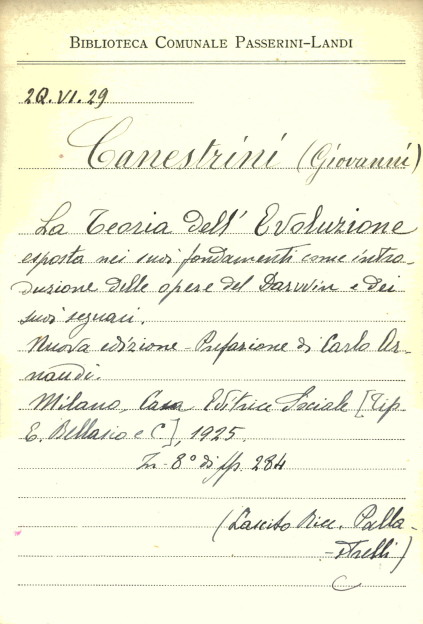 BIBLIOTECA COMUNALE PASSERINI-LANDI
2Q.VI.29
Canestrini (Giovanni)
La Teoria dell' Evoluzione
esposta nei suoi fondamenti come intro-
duzione delle opere del Darwin e dei
suoi seguaci.
Nuova edizione - Prefazione di Carlo Ar-
naudi.
Milano, Casa Editrice Sociale [Tip.
E. Bellasio e C.], 1925.
In-8° di pp. 284
(Lascito Ricc. Palla-
-strelli)